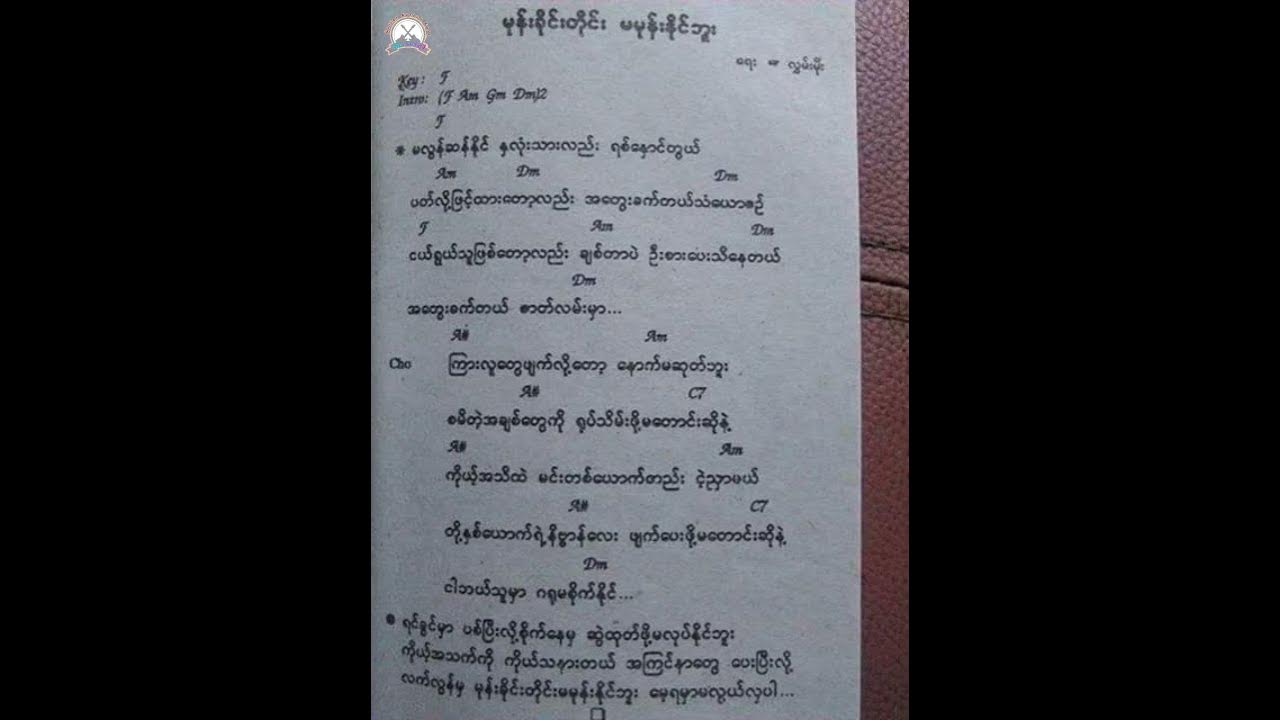 မုန်းခိုင်းတိုင်း မမုန်းနိုင်ဘူး
ရေး - လွှမ်းမိုး
Key: F
Intro: (F Am Gm Dm)2
F
* မလွန်ဆန်နိုင် နှလုံးသားလည်း ရစ်နှောင်တွယ်
Am Dm Dm
ပတ်လို့ဖြင့်ထားတော့လည်း အတွေးခက်တယ်သံယောဇဉ်
F Am Dm
ငယ်ရွယ်သူဖြစ်တော့လည်း ချစ်တာပဲ ဦးစားပေးသိနေတယ်
Dm
အတွေးခက်တယ် ဇာတ်လမ်းမှာ...
A# Am
Cho ကြားလူတွေဖျက်လို့တော့ နောက်မဆုတ်ဘူး
A# C7
စမိတဲ့အချစ်တွေကို ရုပ်သိမ်းဖို့မတောင်းဆိုနဲ့
A# Am
ကိုယ့်အသိထဲ မင်းတစ်ယောက်စာည်း ငဲ့ညှာမယ်
A# C7
တို့နှစ်ယောက်ရဲ့နိဗ္ဗာန်လေး ဖျက်ပေးဖို့မတောင်းဆိုနဲ့
Dm
ငါဘယ်သူမှာ ဂရုမစိုက်နိုင်...
* ရင်ခွင်မှာ ပစ်ပြီးလို့စိုက်နေမှ ဆွဲထုတ်ဖို့မလုပ်နိုင်ဘူး
ကိုယ့်အသက်ကို ကိုယ်သနားတယ် အကြင်နာတွေ ပေးပြီးလို့
လက်လွန်မှ မုန်းခိုင်းတိုင်းမမုန်းနိုင်ဘူး မေ့ရမှာမလွယ်လှပါ...